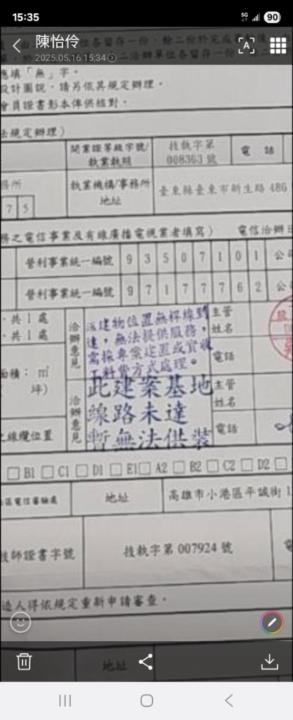 15:35
5G
90
陳怡伶
2025.05.16 15:34
各留存一份
應填「無」字。
設計圖說,請另依其規定辦理。
會員證書影本俾供核對。
法規定辦理)
開業證等級字號/
執業執照
技執字第
008363 號
電 話
務所
7 5
執業機構/事務所
地址
臺東縣臺東市新生路 486
務之電信事業及有線廣播電視業者填寫)
電信洽辦
營利事業統一編號 9 3 5 0 7 1 0 1 公
營利事業統一編號 9 7 1 7 7 7 6 2 公
.共 1 處
.共 1 處
面積: ㎡
坪)
之線纜位置
洽辦意見
該建物位置無桿線到
達,無法提供服務,
需採專案建置或實收
工料費方式處理。
主管
姓名
電話
洽辦意見
此建案基地
線路未達
暫無法供裝
主管
姓名
電話
□ B1 □ C1 □ D1 □ E1 □ A2 □ B2 □ C2 □ D2 □
區電信審驗處
地址
高雄市小港區平誠街 1
技師證書字號
技執字第 007924 號
電
造人得依規定重新申請審查。
地址